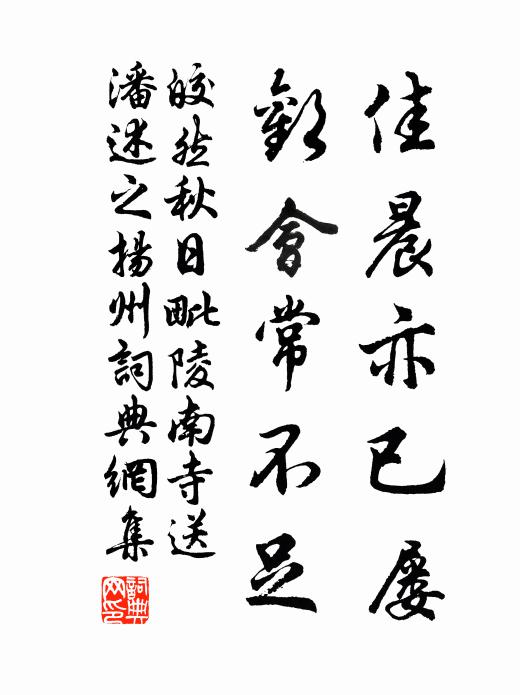 佳晨亦已屡
歡會常不足
皎然秋日毗陵南寺送
潘述之揚州詞典網集